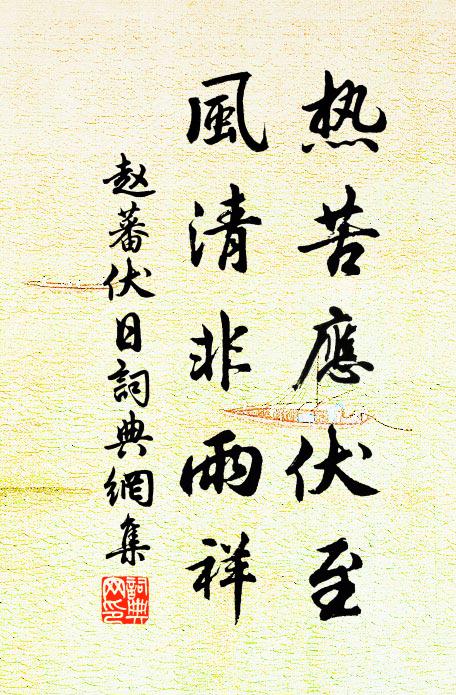 热苦應伏至
風清非雨祥
赵蕃伏日詞典網集
詞典網印